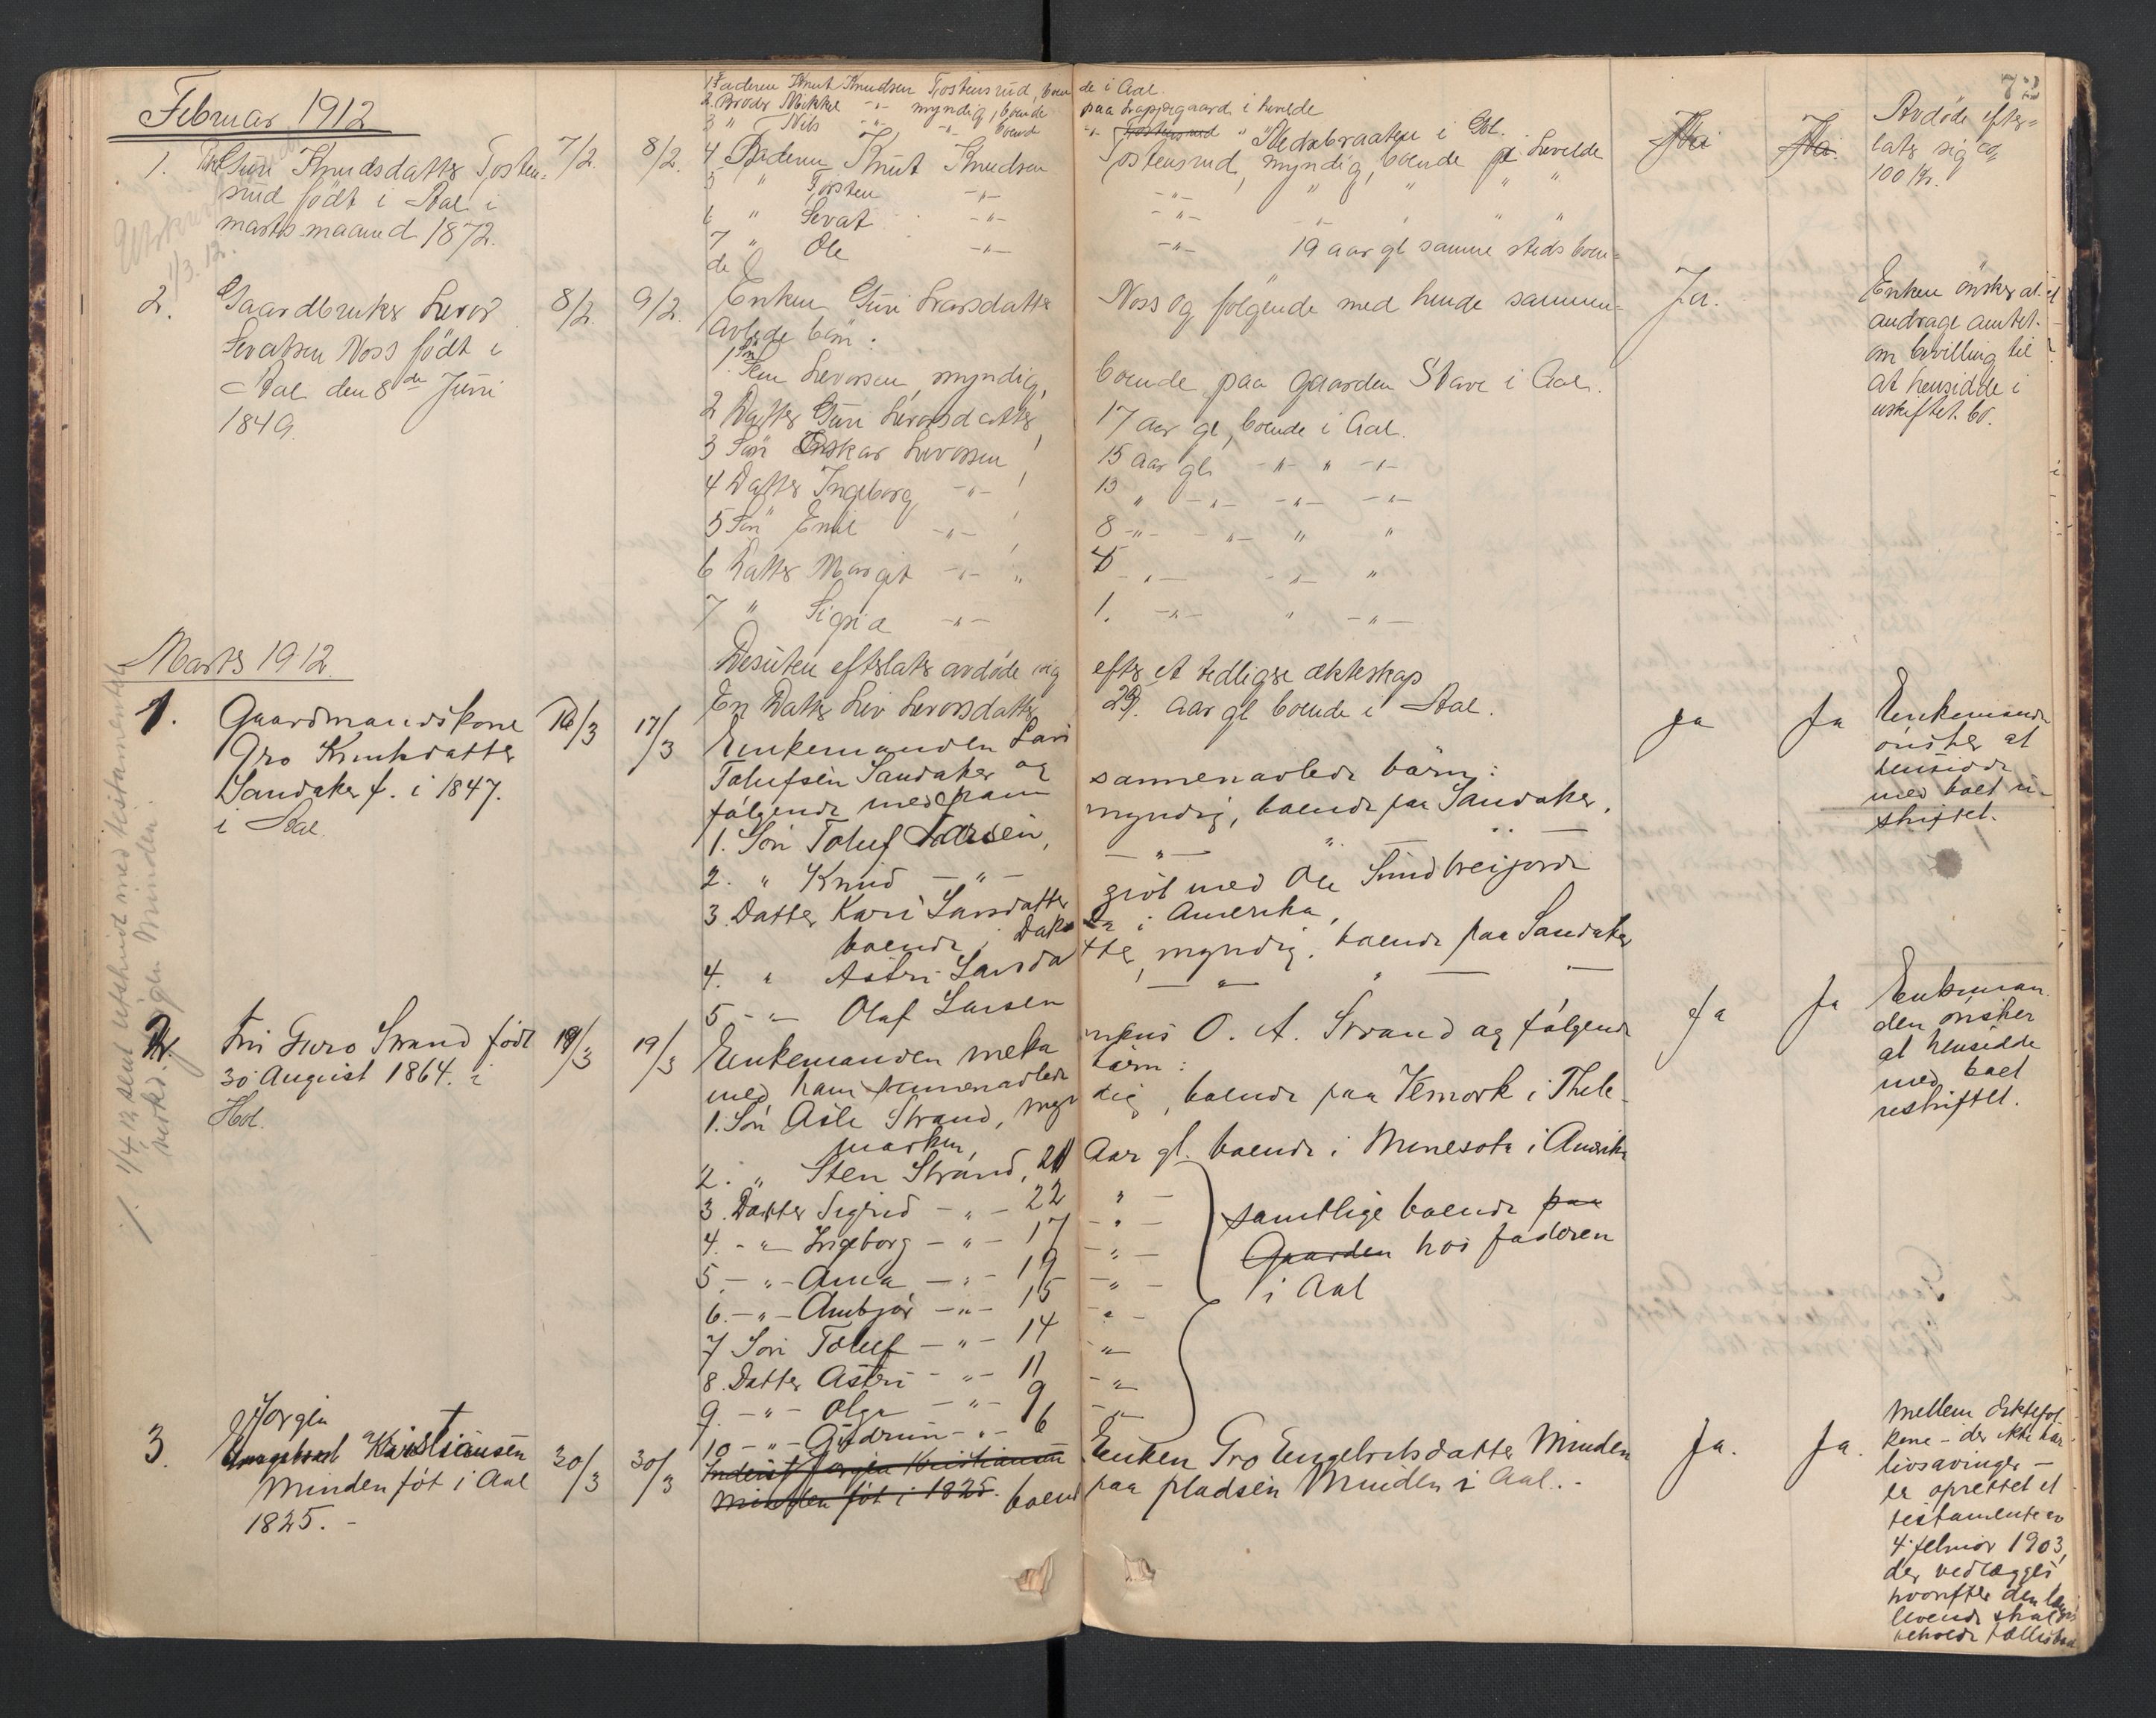 72
Februar 1912
1. Guri Knudsdatter Tosten-
rud født i Aal i
marts maaned 1872.
7/2. 8/2.
1 Faderen Knut Knudsen Tostensrud, boende i Aal.
2. Broder Mikkel -"- myndig, boende paa i Levelde
3 " Nils -"- -"- boend -"- Tostensrud " i Gol.
4 Broderen Knut Knudsen Tostensrud, myndig, boende i Levelde
5 " Torsten -"- -"- " " " "
6 " Sevat -"- -"- " " " "
7 " Ole -"- -"- 19 aar gl samme steds boen-
de
Nei Nei
Avdøde efter-
later sig ca
100 kr.
1/3.12.
2. Gaardbruker Levor
Sevatsen Noss født i
Aal den 8de Juni
1849.
8/2. 9/2.
Enken Guri Larsdatter Noss og følgende med hende sammen-
avlede børn:
1. Søn Levorsen, myndig, boende paa gaarden Stave i Aal.
2 Datter Guri Levorsdatter, 17 aar gl, boende i Aal.
3 Søn Oskar Levorsen, 15 aar gl. -"- " -"-
4 Datter Ingeborg -"- , 13 " -"- -"- -"-
5 Søn Emil -"- , 8 -"- -"- " "
6 Datter Margit -"- " 4 -"- -"- "
7 " Sigria -"- 1. -"- " -"-
Desuten efterlater avdøde sig efter et tidligere ekteskap
En Datter Liv Levorsdatter 29. aar gl boende i Aal.
Ja.
Enken ønsker at
andrage amtet
om bevilling til
at hensidde i
uskiftet bo.
Marts 1912.
1. Gaardmandskone
Gro Knutsdatter
Sandaker f. i 1847.
i Aal.
16/3 17/3
Enkemanden Lars
Tolufsen Sandaker og
følgende med ham sammenavlede børn:
1. Søn Toluf Larsen, myndig, boende paa Sandaker.
2. " Knud -"- -"- " " -
3. Datter Kari Larsdatter givt med Ole Sundbreijorde
boende i Dakota i Amerika,
4. " Astri Larsdatter, myndig. boende paa Sandaker
5 -"- Olaf Larsen, -"- " - -
ja Ja
Enkemanden
ønsker at
hensidde
med boet u-
skiftet.
2. Fru Guro Strand født
30 August 1864. i
Hol.
18/3 19/3
Enkemanden mekanikus O. A. Strand og følgende
med ham sammenavlede børn:
1. Søn Asle Strand, myndig, boende paa Vemork i Thele-
marken,
2. " Sten Strand, 21 Aar gl. boende i Minesota i Amerika
3. Datter Sigrid -"- 22 " -
4. -"- Ingeborg -"- 17 -"-
5 -"- Anna -"- 19 -"-
6. -"- Ambjør -"- 15 -"-
7 Søn Toluf -"- 14 -"-
8. Datter Astri -"- 11 -"-
9. -"- Olga -"- 9 -"-
10 -"- Gudrun -"- 6 -"-
samtlige boende paa
Gaarden hos faderen
i Aal
Ja Ja
Enkeman-
den ønsker
at hensidde
med boet
uskiftet.
3. Jørgen
Kristiansen
Minden føt i Aal
1825. -
30/3 30/3
Inderst Jørgen Kristiansen
Minden føt i 1825.
Enken Gro Engebritsdatter Minden
boend paa pladsen Minden i Aal. -
Ja. Ja.
Mellem Ektefol-
kene - der ikke har
livsarvinger -
er oprettet et
testamente av
4. februar 1903,
der vedlægges
hvorefter den længst
levende skal
beholde fællesboet
./. 1/4 12 sent utskrift med testamentet
verkd. gjen Minden.